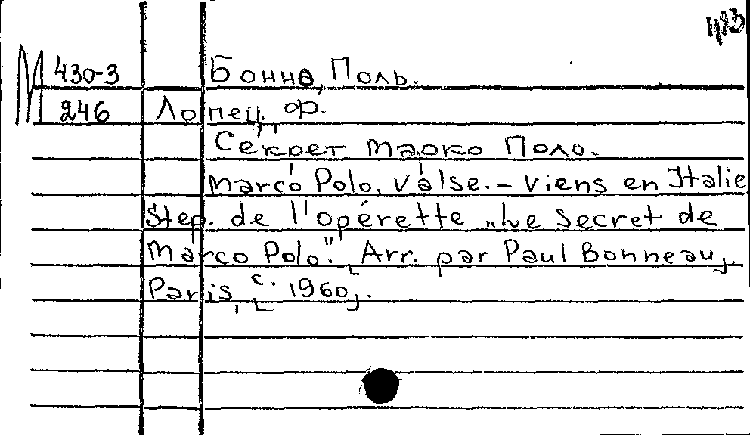 М 430-3 Бонно, Поль.
246 Лопец, Ф.
"Секрет Марко Поло.
Marco Polo. Valse. – Viens en Italie
Step. de l'opérette „Le Secret de
Marco Polo". [Arr. par Paul Bonneau].
Paris, [c. 1960].